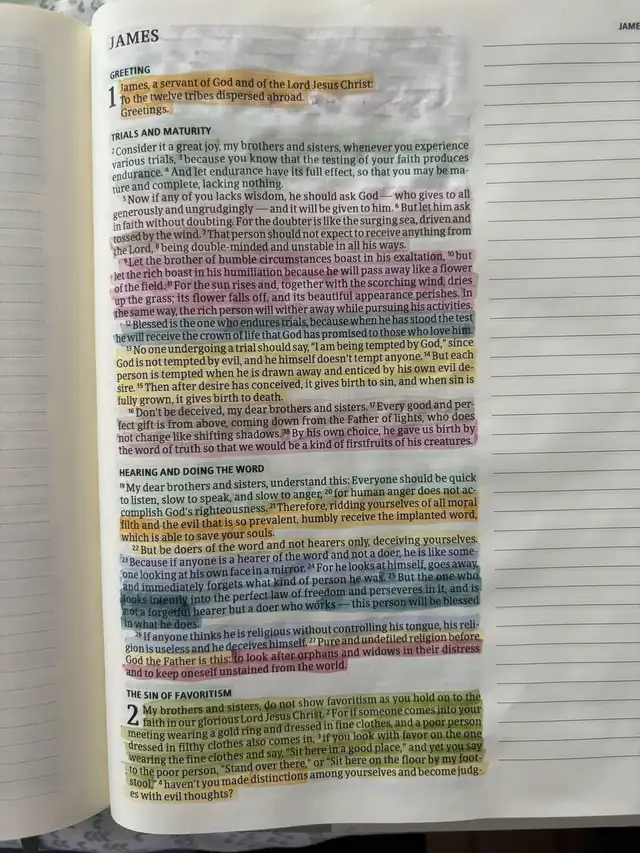 JAMES
JAME
GREETING
1 James, a servant of God and of the Lord Jesus Christ:
To the twelve tribes dispersed abroad.
Greetings.
TRIALS AND MATURITY
2 Consider it a great joy, my brothers and sisters, whenever you experience
various trials, 3 because you know that the testing of your faith produces
endurance. 4 And let endurance have its full effect, so that you may be ma-
ture and complete, lacking nothing.
5 Now if any of you lacks wisdom, he should ask God — who gives to all
generously and ungrudgingly — and it will be given to him. 6 But let him ask
in faith without doubting. For the doubter is like the surging sea, driven and
tossed by the wind. 7 That person should not expect to receive anything from
the Lord, 8 being double-minded and unstable in all his ways.
9 Let the brother of humble circumstances boast in his exaltation, 10 but
let the rich boast in his humiliation because he will pass away like a flower
of the field. 11 For the sun rises and, together with the scorching wind, dries
up the grass; its flower falls off, and its beautiful appearance perishes. In
the same way, the rich person will wither away while pursuing his activities.
12 Blessed is the one who endures trials, because when he has stood the test
he will receive the crown of life that God has promised to those who love him.
13 No one undergoing a trial should say, "I am being tempted by God," since
God is not tempted by evil, and he himself doesn't tempt anyone. 14 But each
person is tempted when he is drawn away and enticed by his own evil de-
sire. 15 Then after desire has conceived, it gives birth to sin, and when sin is
fully grown, it gives birth to death.
16 Don't be deceived, my dear brothers and sisters. 17 Every good and per-
fect gift is from above, coming down from the Father of lights, who does
not change like shifting shadows. 18 By his own choice, he gave us birth by
the word of truth so that we would be a kind of firstfruits of his creatures.
HEARING AND DOING THE WORD
19 My dear brothers and sisters, understand this: Everyone should be quick
to listen, slow to speak, and slow to anger, 20 for human anger does not ac-
complish God's righteousness. 21 Therefore, ridding yourselves of all moral
filth and the evil that is so prevalent, humbly receive the implanted word,
which is able to save your souls.
22 But be doers of the word and not hearers only, deceiving yourselves.
23 Because if anyone is a hearer of the word and not a doer, he is like some-
one looking at his own face in a mirror. 24 For he looks at himself, goes away,
and immediately forgets what kind of person he was. 25 But the one who
looks intently into the perfect law of freedom and perseveres in it, and is
not a forgetful hearer but a doer who works — this person will be blessed
in what he does.
26 If anyone thinks he is religious without controlling his tongue, his reli-
gion is useless and he deceives himself. 27 Pure and undefiled religion before
God the Father is this: to look after orphans and widows in their distress
and to keep oneself unstained from the world.
THE SIN OF FAVORITISM
2 My brothers and sisters, do not show favoritism as you hold on to the
faith in our glorious Lord Jesus Christ. 2 For if someone comes into your
meeting wearing a gold ring and dressed in fine clothes, and a poor person
dressed in filthy clothes also comes in, 3 if you look with favor on the one
wearing the fine clothes and say, "Sit here in a good place," and yet you say
to the poor person, "Stand over there," or "Sit here on the floor by my foot-
stool," 4 haven't you made distinctions among yourselves and become judg-
es with evil thoughts?